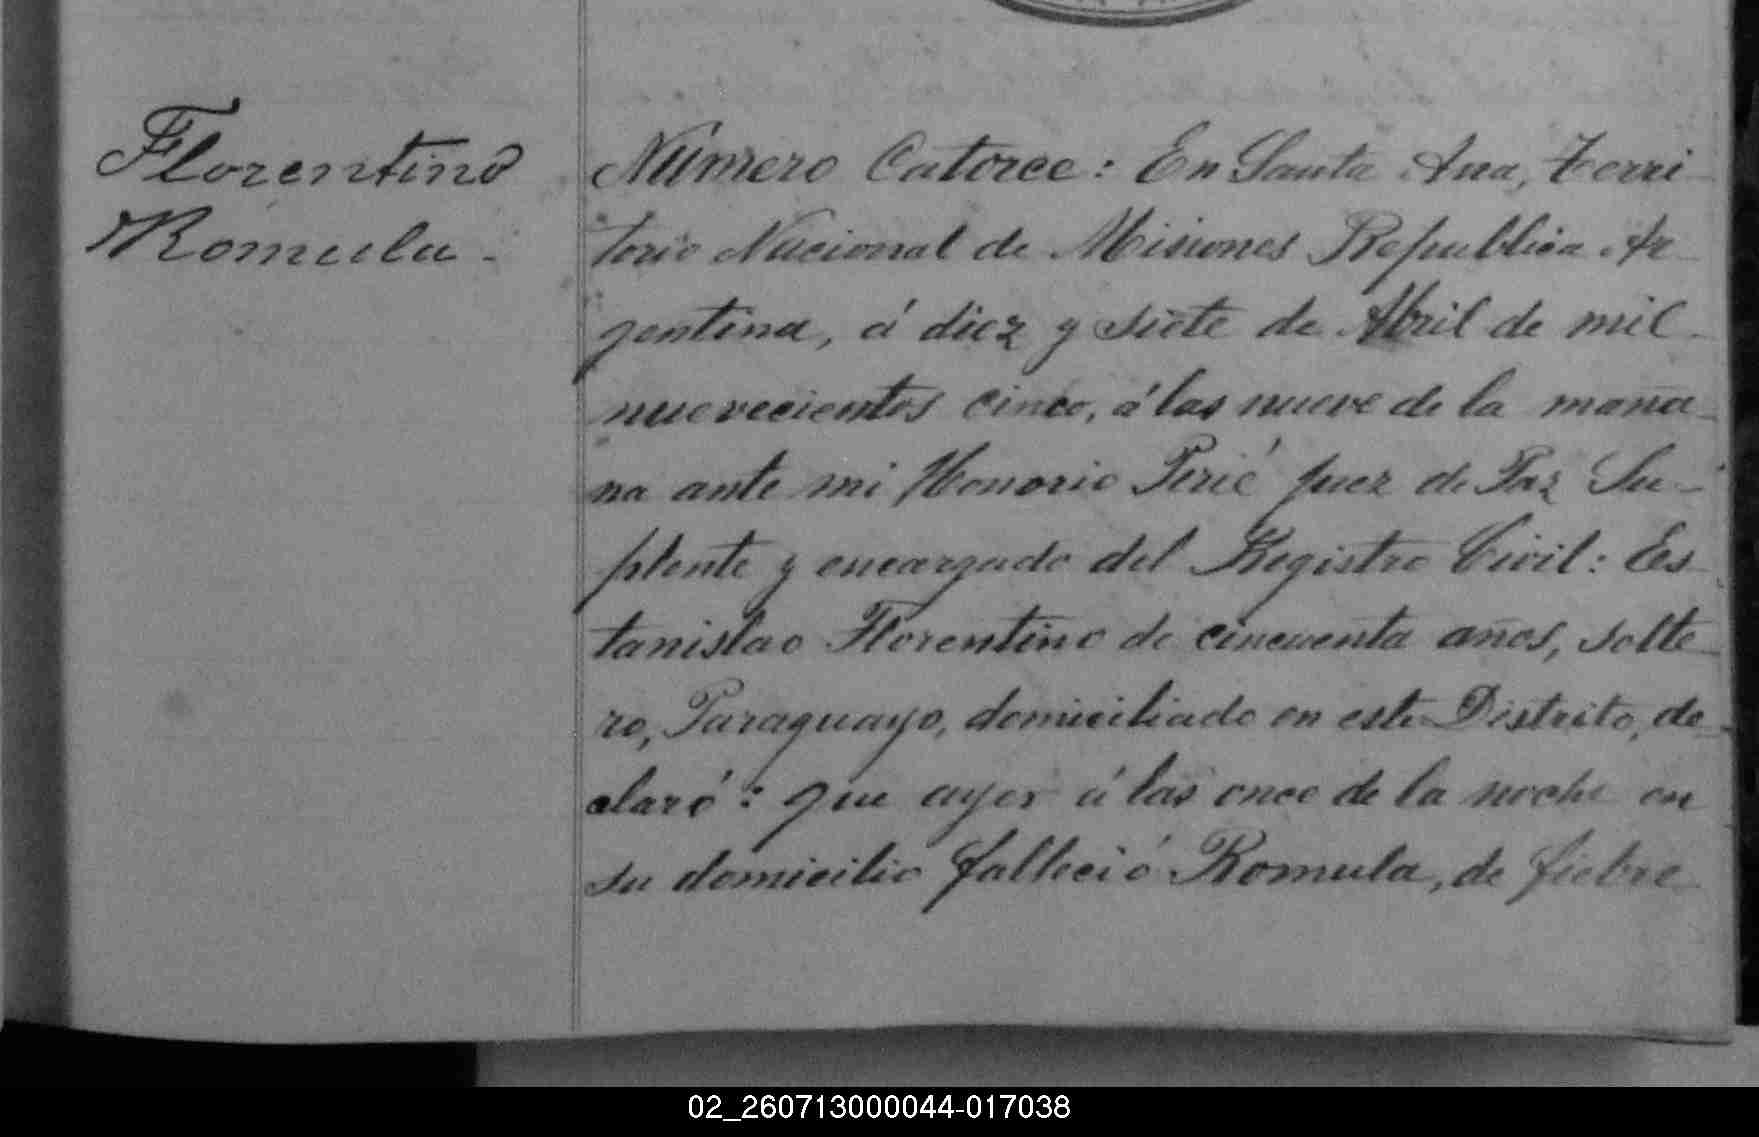 Florentino
Romula -
Número Catorce: En Santa Ana, Terri-
torio Nacional de Misiones Republica Ar-
gentina, á diez y siete de Abril de mil
nuevecientos cinco, á las nueve de la maña-
na ante mi Honorio Perié Juez de Paz Su-
plente y encargado del Registro Civil: Es-
tanislao Florentino de cincuenta años, solte-
ro, Paraguayo, domiciliado en este Distrito, de-
claró: que ayer á las once de la noche en
su domicilio falleció Romula, de fiebre
02_260713000044-017038